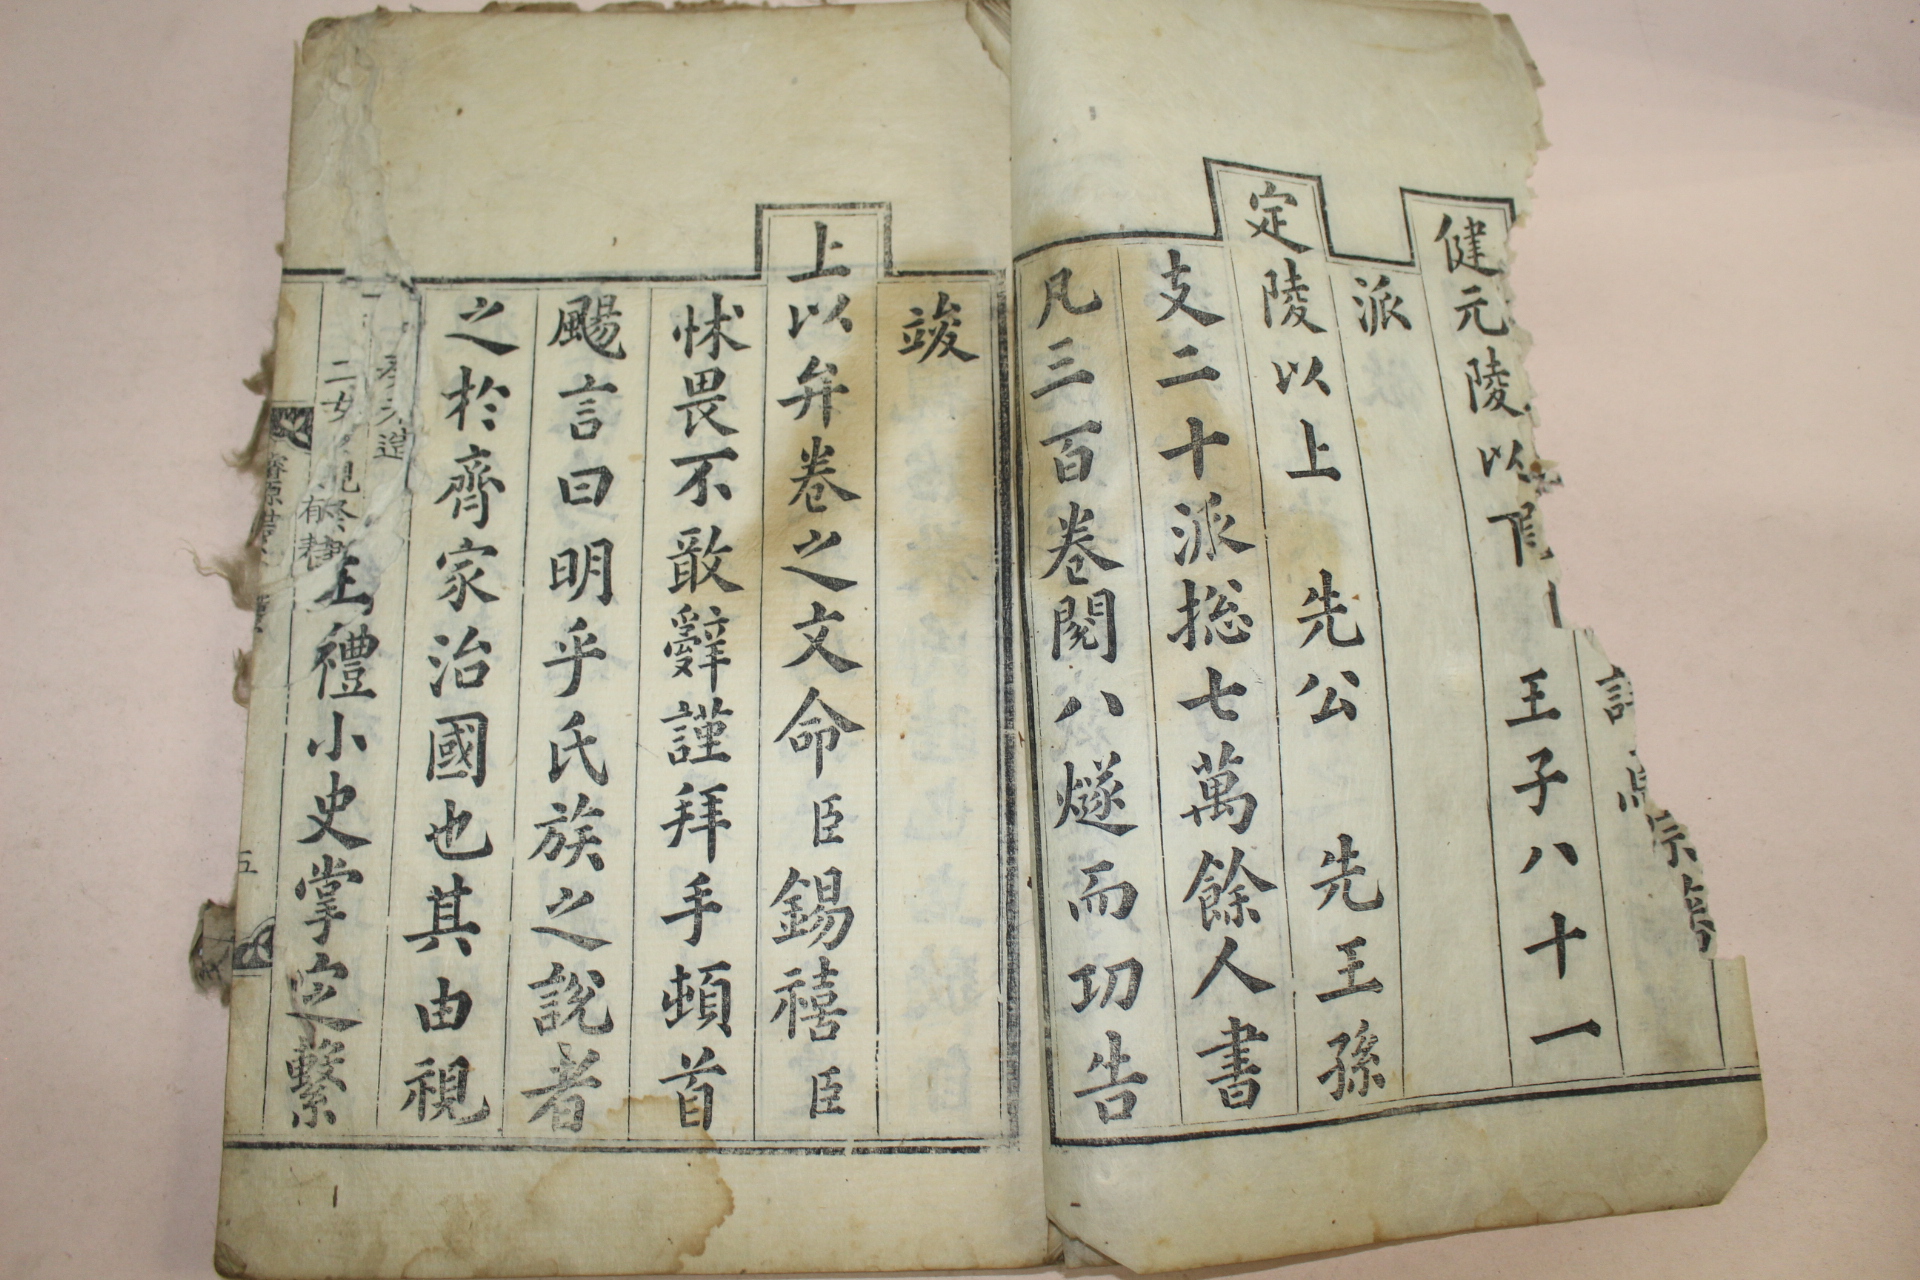 健元陵以下
王子八十一
派
定陵以上 先公 先王孫
支二十派総七萬餘人書
凡三百卷閱八燧而功告
竣
上以弁卷之文命臣錫禧臣
怵畏不敢辭謹拜手頓首
颺言曰明乎氏族之說者
之於齊家治國也其由視
禮小史掌定繫
五